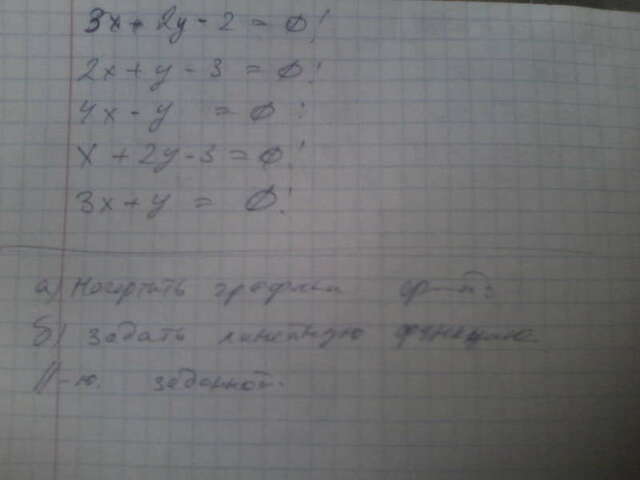 3x + 2y - 2 = 0!
2x + y - 3 = 0!
4x - y = 0!
x + 2y - 3 = 0!
3x + y = 0!
а) Начертить графики ф-ий:
б) Задать линейную функцию
//-ю. заданной.